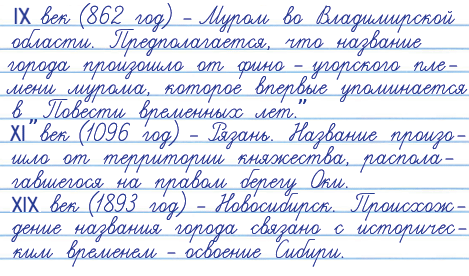 IX век (862 год) – Муром во Владимирской
области. Предполагается, что название
города произошло от фино – угорского пле-
мени мурома, которое впервые упоминается
в „Повести временных лет."
XI век (1096 год) – Рязань. Название произо-
шло от территории княжества, распола-
гавшегося на правом берегу Оки.
XIX век (1893 год) – Новосибирск. Происхож-
дение названия города связано с историчес-
ким временем – освоение Сибири.